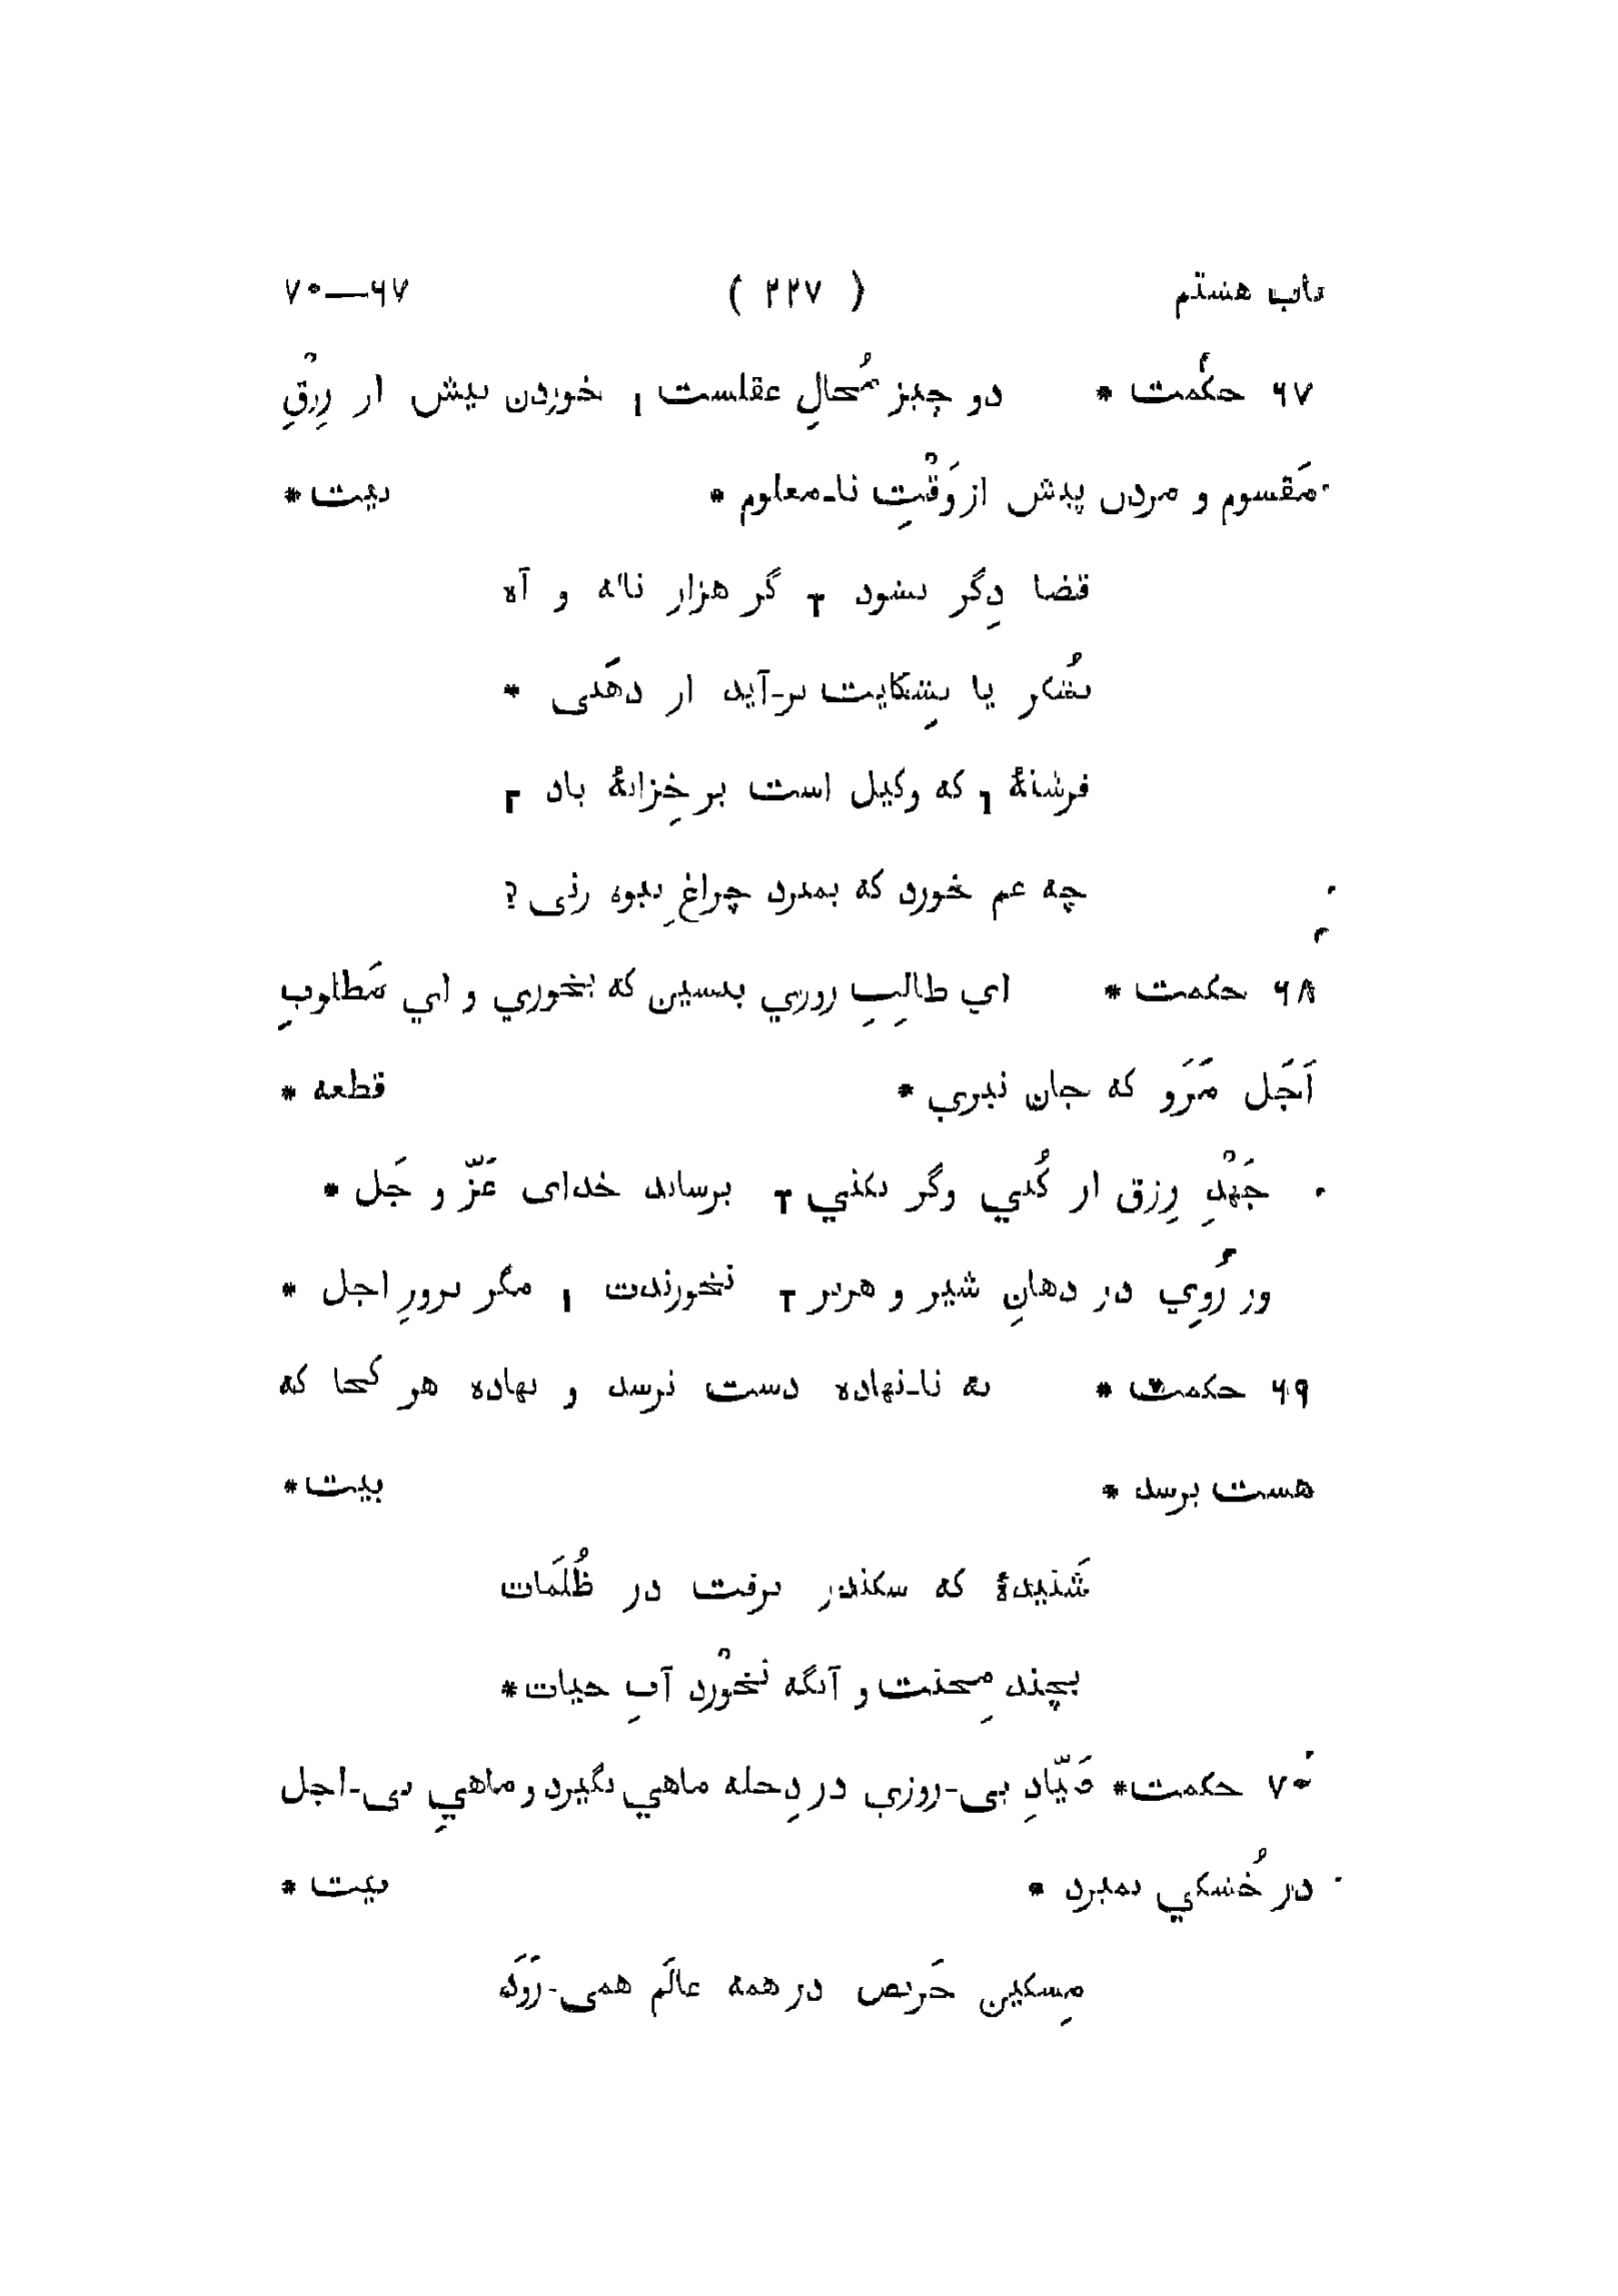 باب هشتم ( ۲۲۷ ) ۶۷—۷۰
۶۷ حکمت * دو چیز مُحالِ عقلست ، خوردن بیش از رِزْقِ
مَقسوم و مردن پیش از وَقْتِ نا-معلوم * بیت *
قضا دِگر نشود گر هزار ناله و آه
بشُکر یا بشِکایت بر-آید از دهَنی *
فرشتهٔ که وکیل است بر خِزانهٔ باد
چه غم خورد که بمیرد چراغِ بیوه زنی ?
۶۸ حکمت * اي طالِبِ روزي بنشین که بخوري و اي مَطلوبِ
اَجَل مَرَو که جان نبري * قطعه *
جَهْدِ رِزق ار کُني وگر نکني برساند خدای عَزّ و جَل *
ور رَوي در دهانِ شیر و هزبر نخورندت مگر بروزِ اجل *
۶۹ حکمت * به نا-نهاده دست نرسد و نهاده هر کجا که
هست برسد * بیت *
شَنیدهٔ که سکندر برفت در ظُلَمات
بچند مِحنت و آنگه نخْوَرد آبِ حیات *
۷۰ حکمت * صَیّادِ بی-روزي در دِجله ماهي نگیرد و ماهيِ بی-اجل
در خُشکي نمیرد * بیت *
مِسکین حَریص در همه عالَم همی-رَوَد